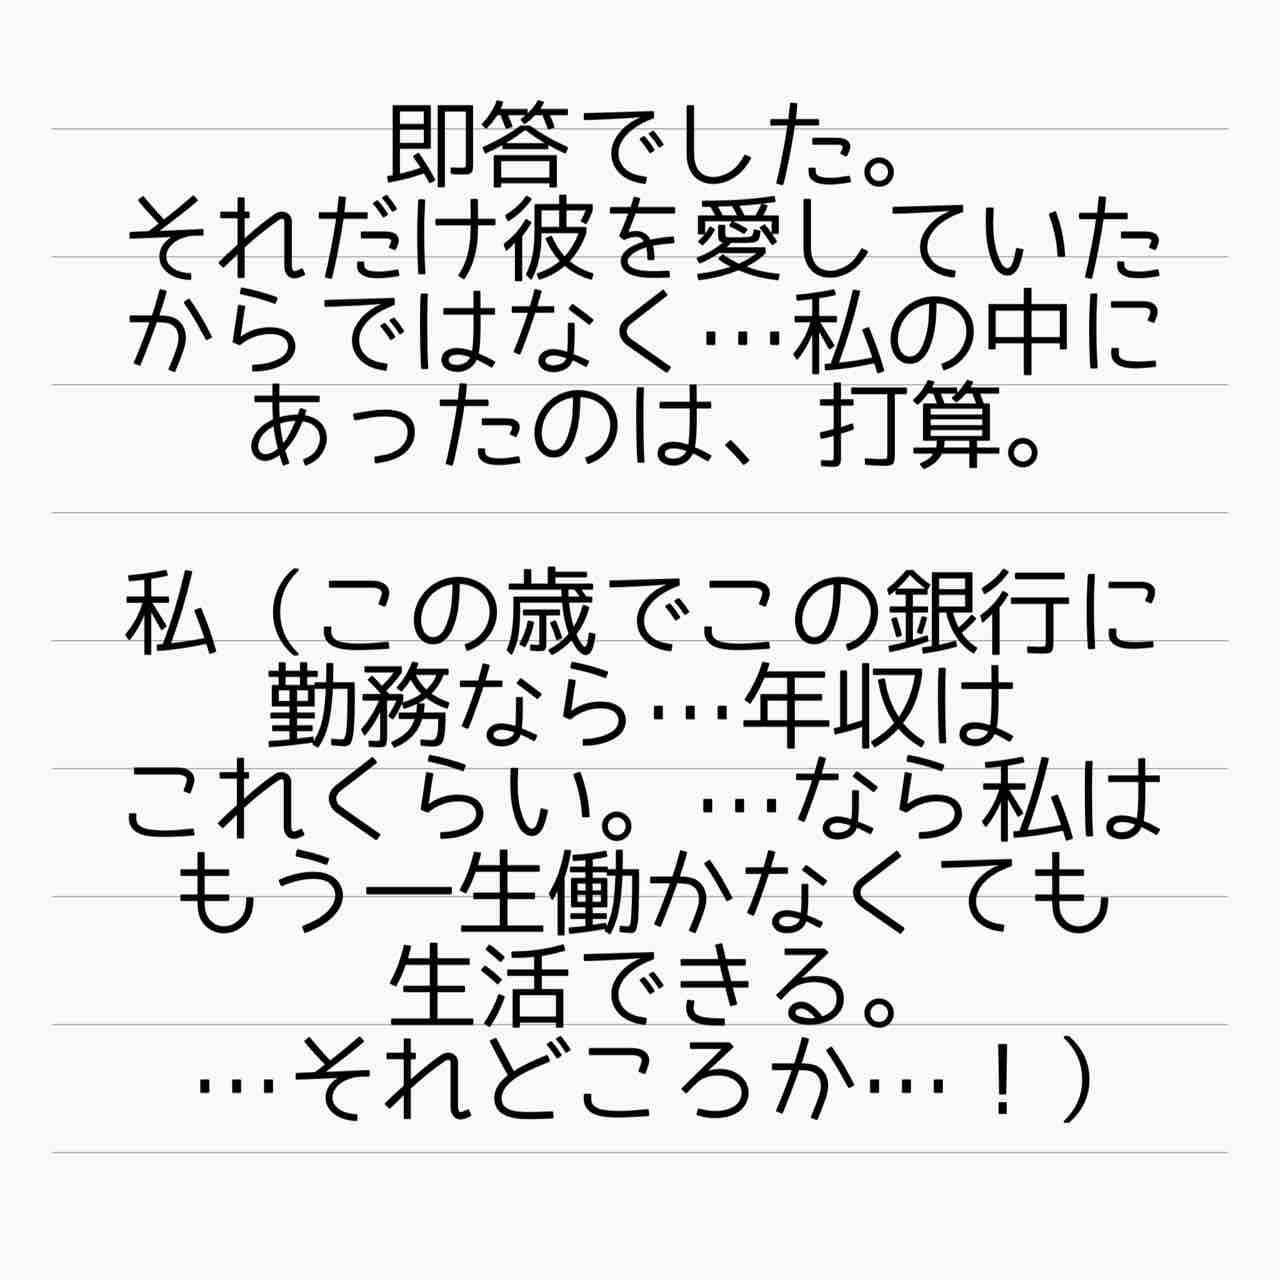 即答でした。
それだけ彼を愛していた
からではなく…私の中に
あったのは、打算。
私（この歳でこの銀行に
勤務なら…年収は
これくらい。…なら私は
もう一生働かなくても
生活できる。
…それどころか…！）